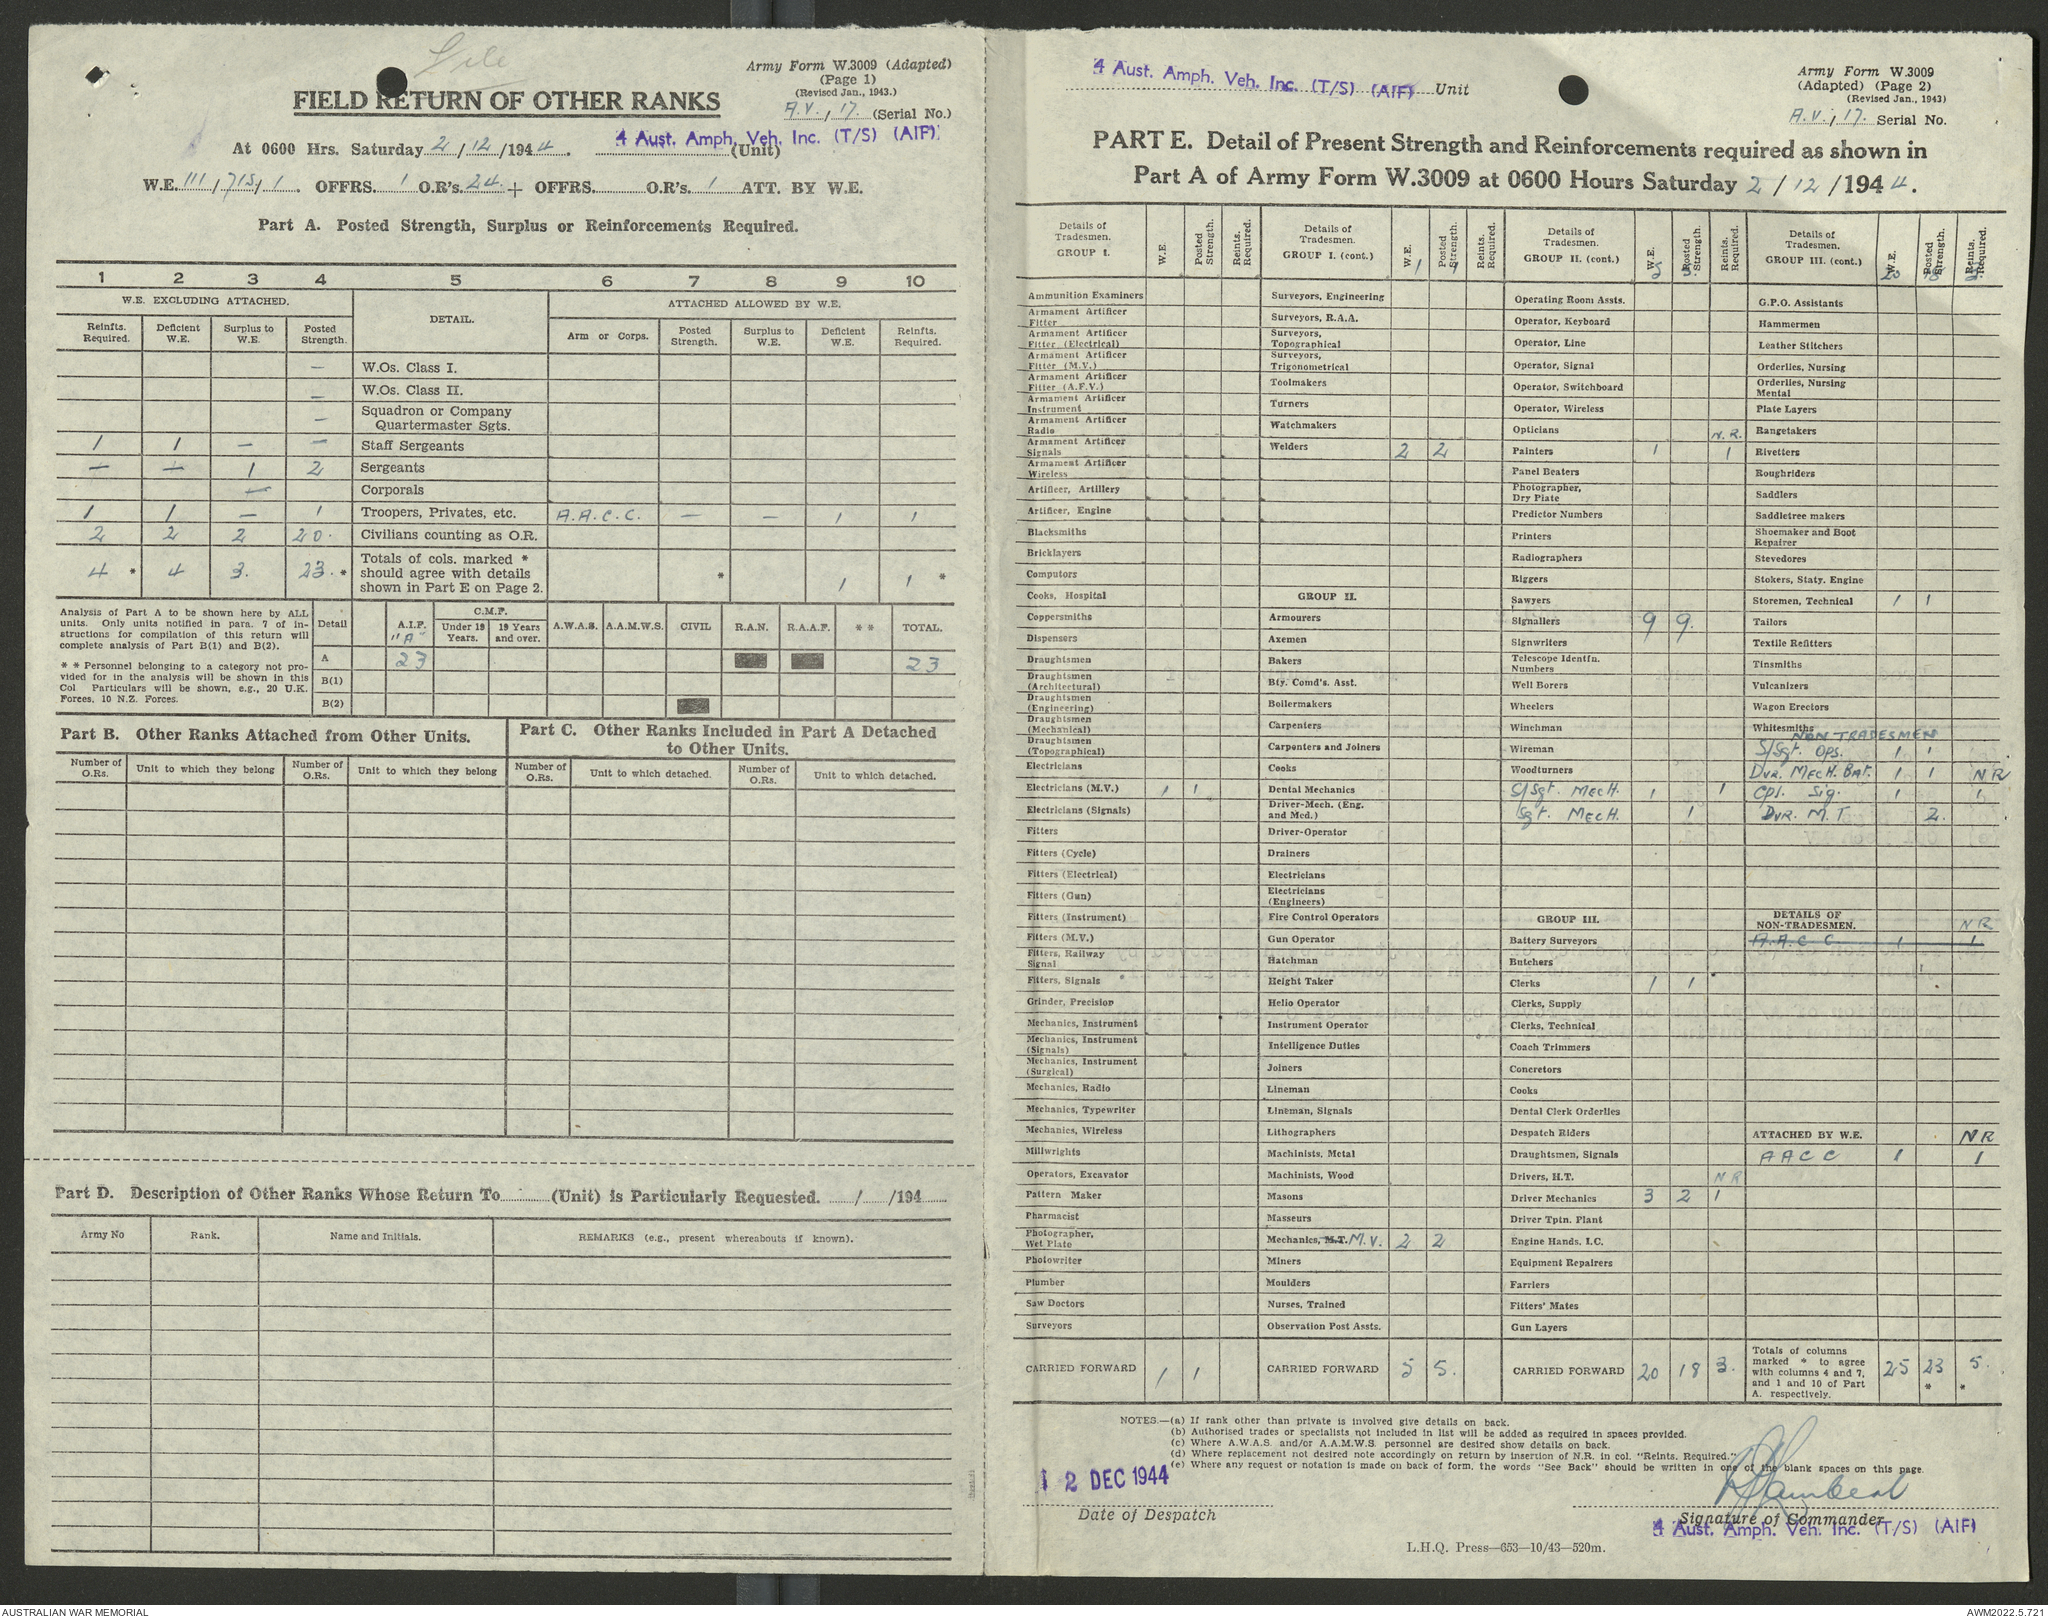 File
Army Form W.3009 (Adapted)
(Page 1)
(Revised Jan., 1943.)
FIELD RETURN OF OTHER RANKS
A.V., 17. (Serial No.)
4 Aust. Amph. Veh. Inc. (T/S) (AIF)
At 0600 Hrs. Saturday 2/12/1944. (Unit)
W.E. III/715/1. OFFRS. 1 O.R's. 24 + OFFRS. O.R's. 1 ATT. BY W.E.
Part A. Posted Strength, Surplus or Reinforcements Required.
1 2 3 4 5 6 7 8 9 10
W.E. EXCLUDING ATTACHED. DETAIL. ATTACHED ALLOWED BY W.E.
Reinfts. Required. Deficient W.E. Surplus to W.E. Posted Strength. Arm or Corps. Posted Strength. Surplus to W.E. Deficient W.E. Reinfts. Required.
— W.Os. Class I.
— W.Os. Class II.
— Squadron or Company Quartermaster Sgts.
1 1 — — Staff Sergeants
— — 1 2 Sergeants
— Corporals
1 1 — 1 Troopers, Privates, etc. A.A.C.C. — — 1 1
2 2 2 20. Civilians counting as O.R.
4 * 4 3. 23. * Totals of cols. marked * should agree with details shown in Part E on Page 2. * 1 1 *
Analysis of Part A to be shown here by ALL
units. Only units notified in para. 7 of in-
structions for compilation of this return will
complete analysis of Part B(1) and B(2).
* * Personnel belonging to a category not pro-
vided for in the analysis will be shown in this
Col Particulars will be shown, e.g., 20 U.K.
Forces, 10 N.Z. Forces.
Detail A.I.F. "A" C.M.F. Under 19 Years. 19 Years and over. A.W.A.S. A.A.M.W.S. CIVIL R.A.N. R.A.A.F. * * TOTAL.
A 23 23
B(1)
B(2)
Part B. Other Ranks Attached from Other Units.
Number of O.Rs. Unit to which they belong Number of O.Rs. Unit to which they belong
Part C. Other Ranks Included in Part A Detached
to Other Units.
Number of O.Rs. Unit to which detached. Number of O.Rs. Unit to which detached.
Part D. Description of Other Ranks Whose Return To (Unit) is Particularly Requested. / /194
Army No Rank. Name and Initials. REMARKS (e.g., present whereabouts if known).
4 Aust. Amph. Veh. Inc. (T/S) (AIF) Unit
Army Form W.3009
(Adapted) (Page 2)
(Revised Jan., 1943)
A.V., 17. Serial No.
PART E. Detail of Present Strength and Reinforcements required as shown in
Part A of Army Form W.3009 at 0600 Hours Saturday 2/12/1944.
Details of Tradesmen. GROUP I. W.E. Posted Strength. Reints. Required.
Ammunition Examiners
Armament Artificer Fitter
Armament Artificer Fitter (Electrical)
Armament Artificer Fitter (M.V.)
Armament Artificer Fitter (A.F.V.)
Armament Artificer Instrument
Armament Artificer Radio
Armament Artificer Signals
Armament Artificer Wireless
Artificer, Artillery
Artificer, Engine
Blacksmiths
Bricklayers
Computors
Cooks, Hospital
Coppersmiths
Dispensers
Draughtsmen
Draughtsmen (Architectural)
Draughtsmen (Engineering)
Draughtsmen (Mechanical)
Draughtsmen (Topographical)
Electricians
Electricians (M.V.) 1 1
Electricians (Signals)
Fitters
Fitters (Cycle)
Fitters (Electrical)
Fitters (Gun)
Fitters (Instrument)
Fitters (M.V.)
Fitters, Railway Signal
Fitters, Signals
Grinder, Precision
Mechanics, Instrument
Mechanics, Instrument (Signals)
Mechanics, Instrument (Surgical)
Mechanics, Radio
Mechanics, Typewriter
Mechanics, Wireless
Millwrights
Operators, Excavator
Pattern Maker
Pharmacist
Photographer, Wet Plate
Photowriter
Plumber
Saw Doctors
Surveyors
CARRIED FORWARD 1 1
Details of Tradesmen. GROUP I. (cont.) W.E. 1 Posted Strength. 1 Reints. Required.
Surveyors, Engineering
Surveyors, R.A.A.
Surveyors, Topographical
Surveyors, Trigonometrical
Toolmakers
Turners
Watchmakers
Welders 2 2
GROUP II.
Armourers
Axemen
Bakers
Bty. Comd's. Asst.
Boilermakers
Carpenters
Carpenters and Joiners
Cooks
Dental Mechanics
Driver-Mech. (Eng. and Med.)
Driver-Operator
Drainers
Electricians
Electricians (Engineers)
Fire Control Operators
Gun Operator
Hatchman
Height Taker
Helio Operator
Instrument Operator
Intelligence Duties
Joiners
Lineman
Lineman, Signals
Lithographers
Machinists, Metal
Machinists, Wood
Masons
Masseurs
Mechanics, M.T. M.V. 2 2
Miners
Moulders
Nurses, Trained
Observation Post Assts.
CARRIED FORWARD 5 5.
Details of Tradesmen. GROUP II. (cont.) W.E. 5 Posted Strength. 5 Reints. Required.
Operating Room Assts.
Operator, Keyboard
Operator, Line
Operator, Signal
Operator, Switchboard
Operator, Wireless
Opticians N.R.
Painters 1 1
Panel Beaters
Photographer, Dry Plate
Predictor Numbers
Printers
Radiographers
Riggers
Sawyers
Signallers 9 9.
Signwriters
Telescope Identfn. Numbers
Well Borers
Wheelers
Winchman
Wireman
Woodturners
S/Sgt. MECH. 1 1
Sgt. MECH. 1
GROUP III.
Battery Surveyors
Butchers
Clerks 1 1
Clerks, Supply
Clerks, Technical
Coach Trimmers
Concretors
Cooks
Dental Clerk Orderlies
Despatch Riders
Draughtsmen, Signals
Drivers, H.T. N R
Driver Mechanics 3 2 1
Driver Tptn. Plant
Engine Hands, I.C.
Equipment Repairers
Farriers
Fitters' Mates
Gun Layers
CARRIED FORWARD 20 18 3.
Details of Tradesmen. GROUP III. (cont.) W.E. 20 Posted Strength. 18 Reints. Required.
G.P.O. Assistants
Hammermen
Leather Stitchers
Orderlies, Nursing
Orderlies, Nursing Mental
Plate Layers
Rangetakers
Rivetters
Roughriders
Saddlers
Saddletree makers
Shoemaker and Boot Repairer
Stevedores
Stokers, Staty. Engine
Storemen, Technical 1 1
Tailors
Textile Refitters
Tinsmiths
Vulcanizers
Wagon Erectors
Whitesmiths
NON TRADESMEN
S/Sgt. Ops. 1 1
DVR. MECH. BAT. 1 1 N R
Cpl. Sig. 1 1
DVR. M.T. 2.
DETAILS OF NON-TRADESMEN. N R
A.A.C C. 1 1
ATTACHED BY W.E. N R
A A C C 1 1
Totals of columns marked * to agree with columns 4 and 7, and 1 and 10 of Part A. respectively. 25 23 * 5. *
NOTES.—(a) If rank other than private is involved give details on back.
(b) Authorised trades or specialists not included in list will be added as required in spaces provided.
(c) Where A.W.A.S. and/or A.A.M.W.S. personnel are desired show details on back.
(d) Where replacement not desired note accordingly on return by insertion of N.R. in col. "Reints. Required."
(e) Where any request or notation is made on back of form, the words "See Back" should be written in one of the blank spaces on this page.
1 2 DEC 1944
Date of Despatch
Signature of Commander
4 Aust. Amph. Veh. Inc. (T/S) (AIF)
L.H.Q. Press—653—10/43—520m.
AUSTRALIAN WAR MEMORIAL
AWM2022.5.721